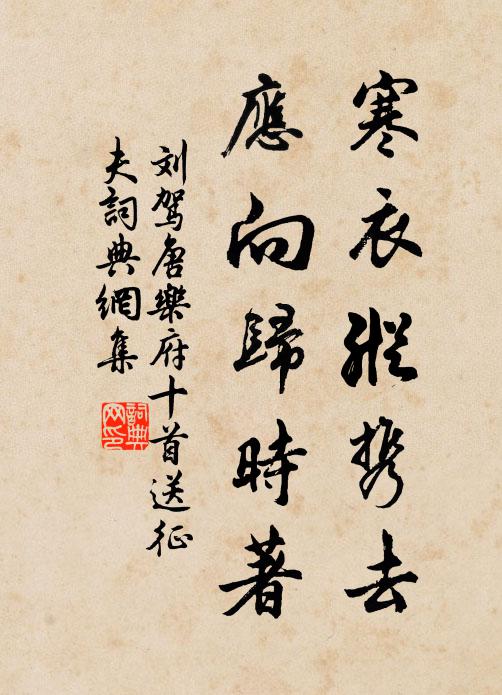 寒衣縱携去
應向歸時著
刘驾唐樂府十首送征
夫詞典網集
詞典网印